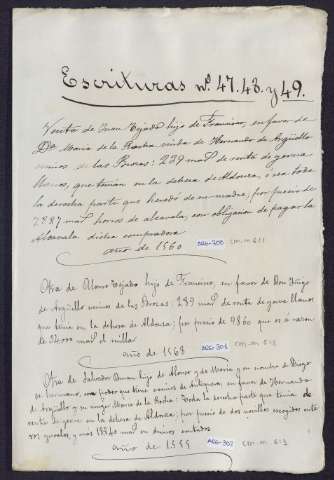 Escrituras nº 47. 48. y 49.
Venta de Juan Tejado hijo de Francisco, en favor de
Dª María de la Rocha viuda de Hernando de Argüello
vecinos de las Brozas: 229 mas de renta de yerva
que tenían en la dehesa de Aldonza, o sea toda
la derecha parte que heredó de su madre, por precio de
2287 mas horros de alcavala, con obligación de pagar la
Alcavala dicha compradora
año de 1560 AGG-300 cm.m. 611
Otra de Alonso Tejado hijo de Francisco, en favor de Don Iñigo
de Argüello vecinos de las Brozas: 289 mas de renta de yerva
que tenia en la dehesa de Aldonza; por precio de 9860 que es á razon
de mas el millar
año de 1568 AGG-301 cm.m. 612
Otra de Salvador Duran hijo de Alonso y de María y en nombre de Diego
su hermano, con poder que tiene vecinos de en favor de Hernando
de Argüello y su muger María de la Rocha: toda la derecha parte que tenia de
renta de yerva en la dehesa de Aldonza, por precio de dos novillos
y mas mas en dineros contados
año de 1555 AGG-302 cm.m. 613